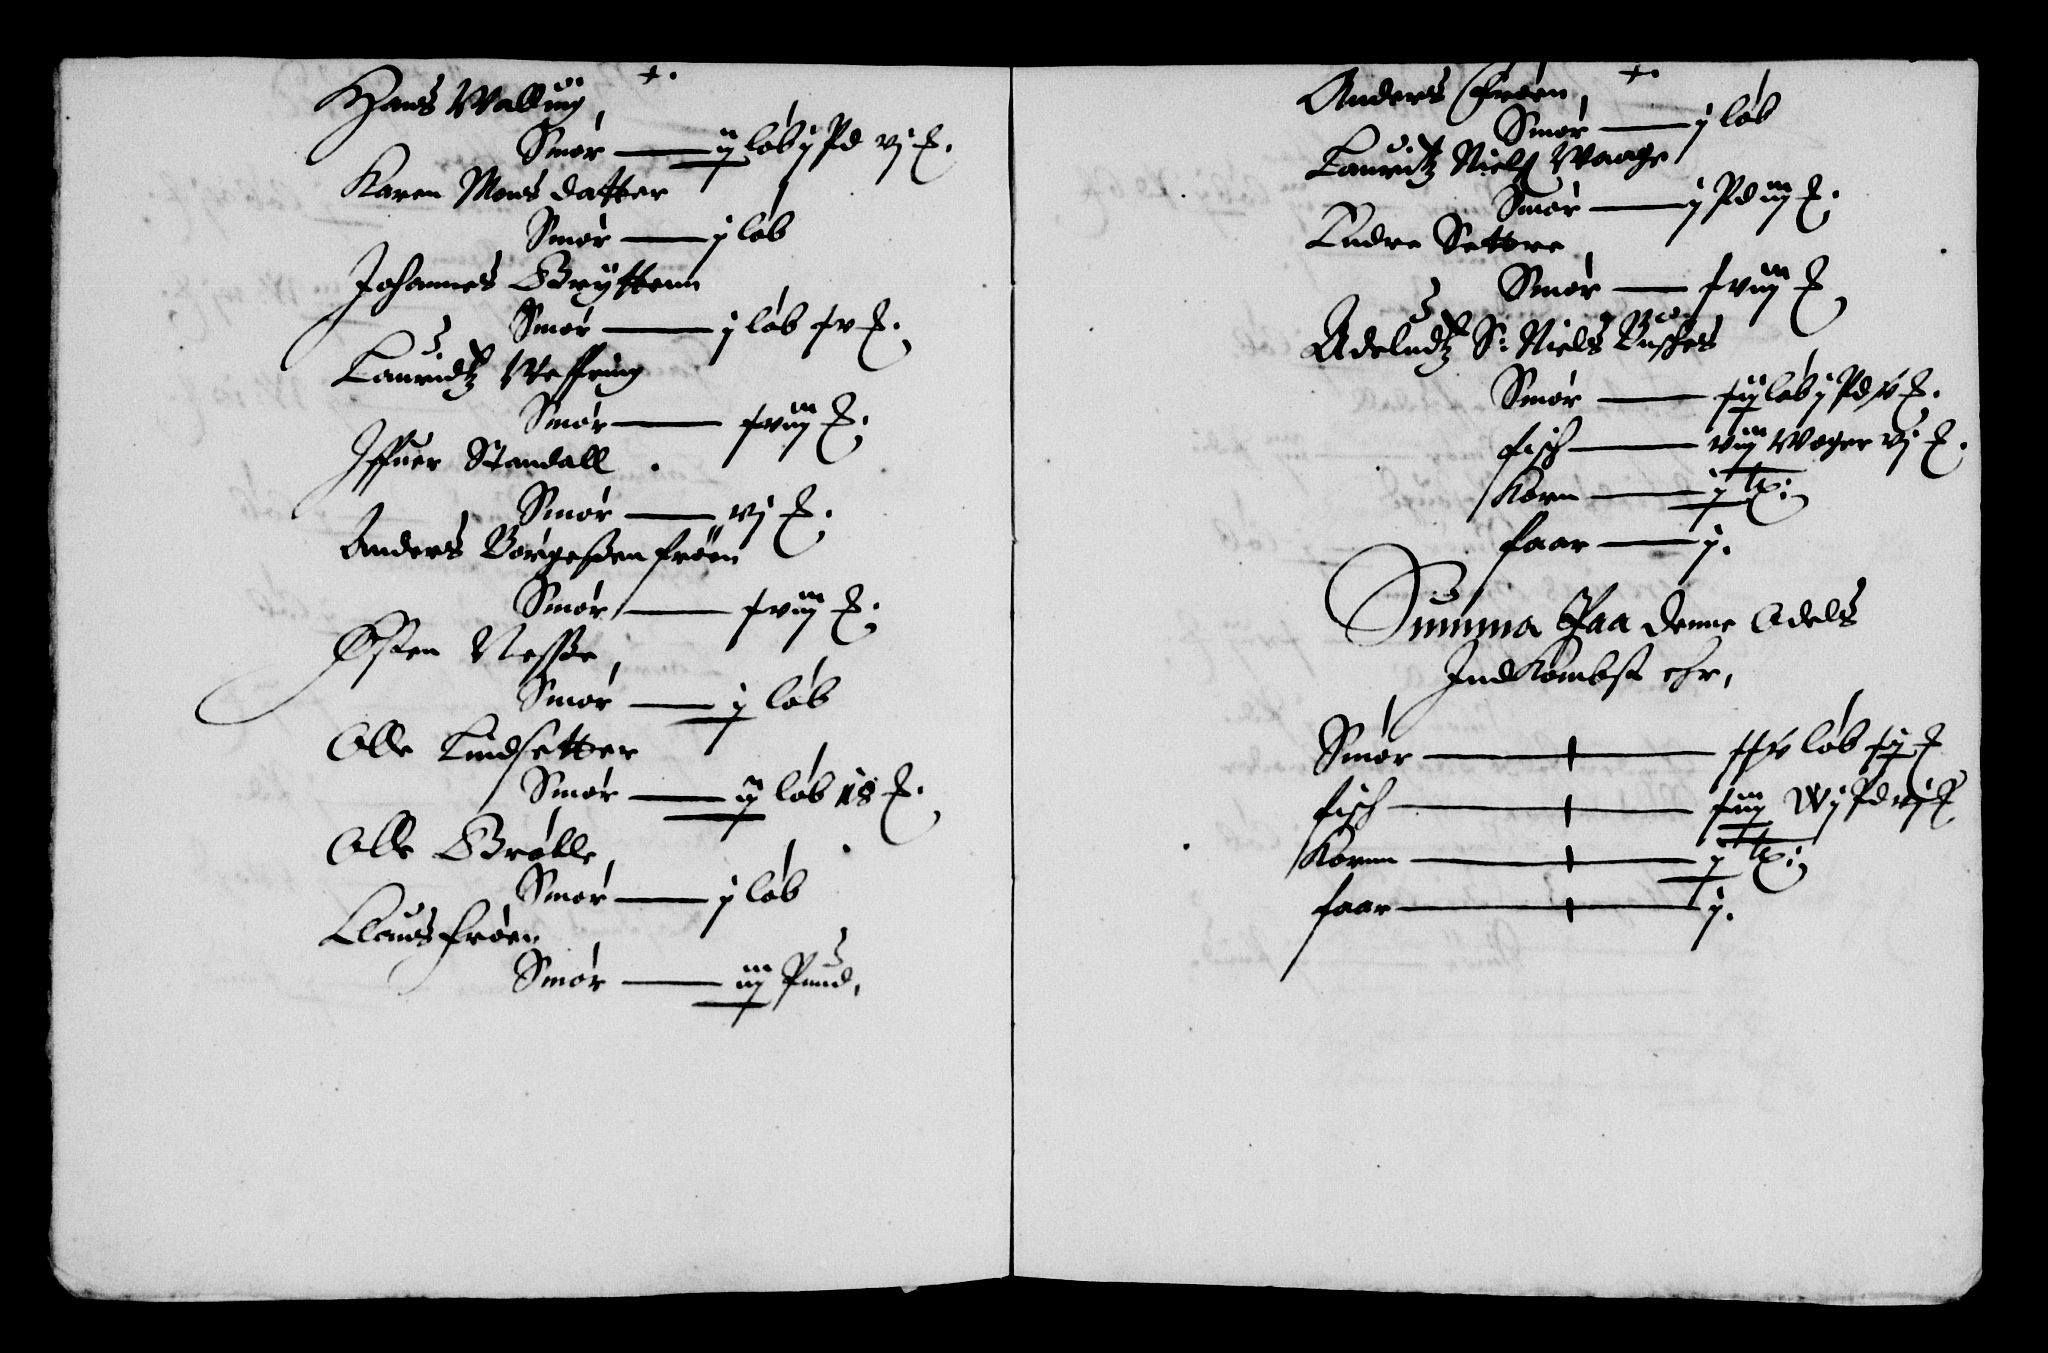 +.
Hans Walling,
Smør — ij løb j Pd vj ℔.
Karen Mons datter
Smør — j løb
Johannes Gryttenn
Smør — j løb xv ℔.
Lauridtz Wessring
Smør — xviij ℔.
Iffuer Standall
Smør — vj ℔.
Anders Børgeßen frøen
Smør — xviij ℔.
Østen Neßße,
Smør — ij løb
Olle Lindsetter
Smør — ij løb 18 ℔.
Olle Grølle,
Smør — j løb
Claus frøen
Smør — iij Pund,
+.
Anders frøen,
Smør — j løb
Lauridtz Niels Waage
Smør — j Pd iij ℔.
Endre Settre
Smør — xviij ℔
Adeludtz Sr: Niels Busches
Smør — xij løb j Pd xv ℔.
fisch — viij Woger vj ℔.
Korn — ij tß:
faar — j.
Summa Paa denne Adels
Jndkombst ehr,
Smør — xxv løb xij ℔
fisch — xiiij W j Pd vj ℔
Kornn — ij tß:
faar — j.